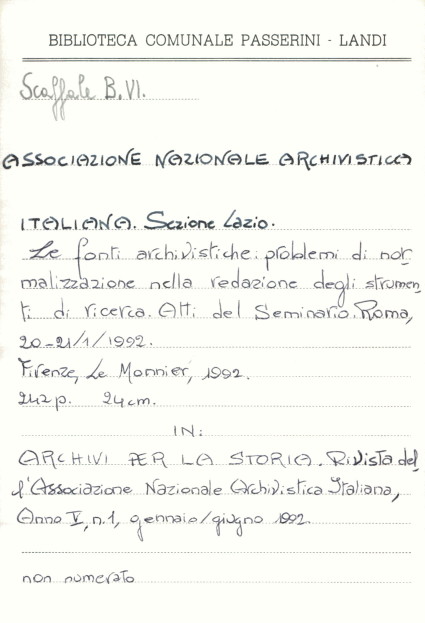 BIBLIOTECA COMUNALE PASSERINI - LANDI
Scaffale B.VI.
ASSOCIAZIONE NAZIONALE ARCHIVISTICA
ITALIANA. Sezione Lazio.
Le fonti archivistiche: problemi di nor
malizzazione nella redazione degli strumen
ti di ricerca. Atti del Seminario. Roma,
20-21/1/1992.
Firenze, Le Monnier, 1992.
242 p. 24 cm.
IN:
ARCHIVI PER LA STORIA. Rivista del
l'Associazione Nazionale Archivistica Italiana,
Anno V, n.1, gennaio/giugno 1992.
non numerato